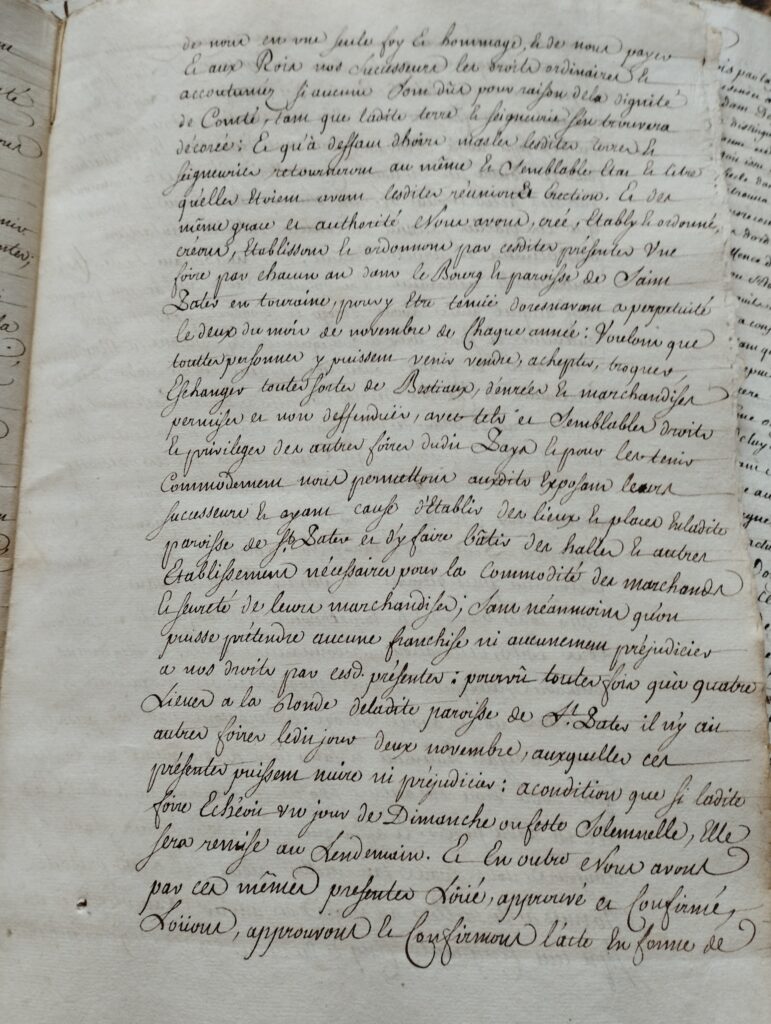 de nous en une seule foy et hommage, et de nous payer
Et aux Rois nos successeurs les droits ordinaires et
accoutumez si aucuns sont dûs pour raison de la dignité
de Comté, tant que ladite terre et seigneurie s'en trouvera
décorée; Et qu'à deffaut d'hoirs masles lesdites terres et
seigneuries retourneront au même et semblable Etat et titre
qu'elles étoient avant lesdites réunion et Erection. Et des
même grace et authorité Nous avons, créé, Etably et ordonné,
créons, Etablissons et ordonnons par cesdites présentes Une
foire par chacun an dans le Bourg et paroisse de Saint
Pater en touraine, pour y Etre tenüe doresnavant a perpetuité
le deux du mois de novembre de Chaque année: Voulons que
touttes personnes y puissent venir vendre, achepter, troquer,
Eschanger toutes sortes de Bestiaux, denrées et marchandises
permises et non deffendües, avec tels et semblables droits
et privileges des autres foires dudit Pays et pour les tenir
Commodement nous permettons auxdits Exposans leurs
successeurs et ayant cause d'Etablir des lieux et places En ladite
paroisse de St. Pater et d'y faire bâtir des halles et autres
Etablissement nécessaires pour la commodité des marchands
et seureté de leurs marchandises; sans néanmoins qu'on
puisse prétendre aucune franchise ni aucunement préjudicier
a nos droits par cesd. présentes: pourvû toutes fois qu'à quatre
Lieues a la Ronde de ladite paroisse de St. Pater il n'y ait
autres foires ledit jour deux novembre, auxquelles ces
présentes puissent nuire ni préjudicier: a condition que si ladite
foire Echéoit un jour de Dimanche ou feste Solemnelle, Elle
sera remise au Lendemain. Et En outre Nous avons
par ces mêmes presentes Loüé, approuvé et Confirmé,
Loüons, approuvons et Confirmons l'acte En forme de